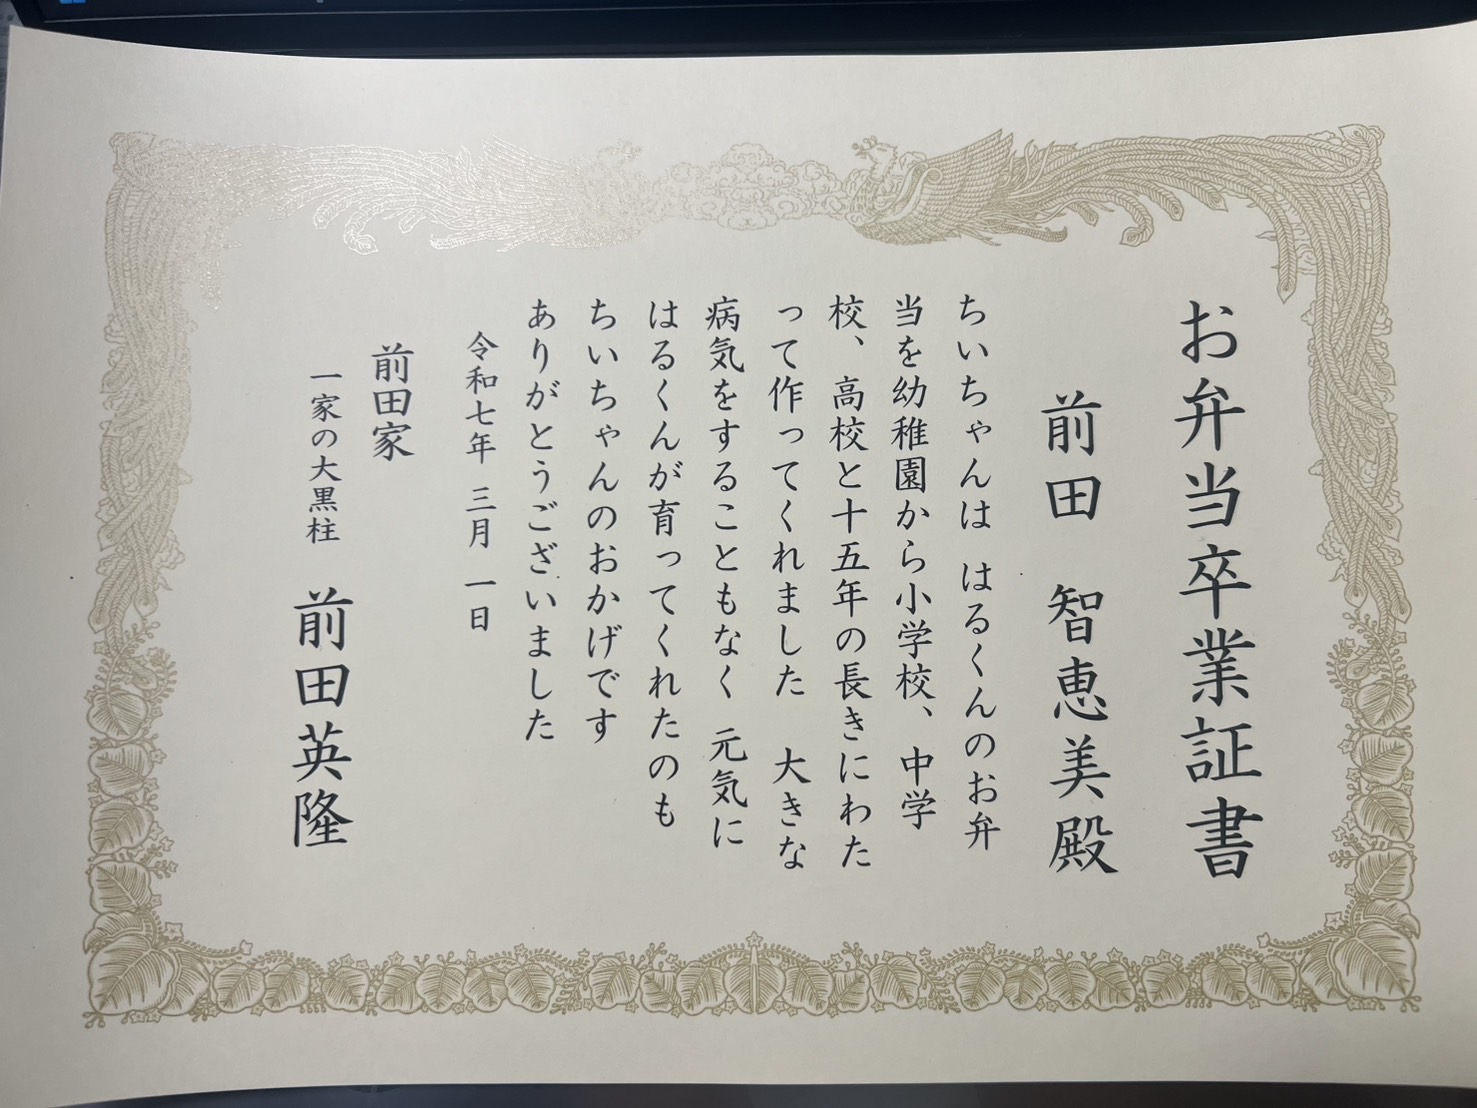 お弁当卒業証書
前田　智恵美殿
ちいちゃんは　はるくんのお弁
当を幼稚園から小学校、中学
校、高校と十五年の長きにわた
って作ってくれました　大きな
病気をすることもなく　元気に
はるくんが育ってくれたのも
ちいちゃんのおかげです
ありがとうございました
令和七年　三月　一日
前田家
一家の大黒柱　前田英隆